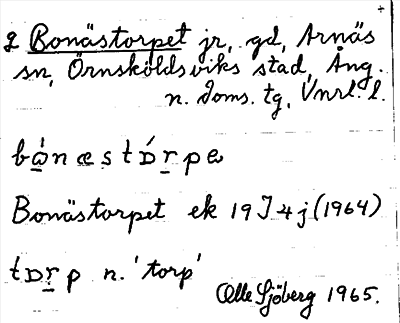 2 Bonästorpet jr, gd, Arnäs
sn, Örnsköldsviks stad, Ång.
n. doms. tg, Vnrl. l.
bo̱̍næst̍ɒṟpe
Bonästorpet ek 19 J4j (1964)
tɒṟp n. 'torp'
Olle Sjöberg 1965.